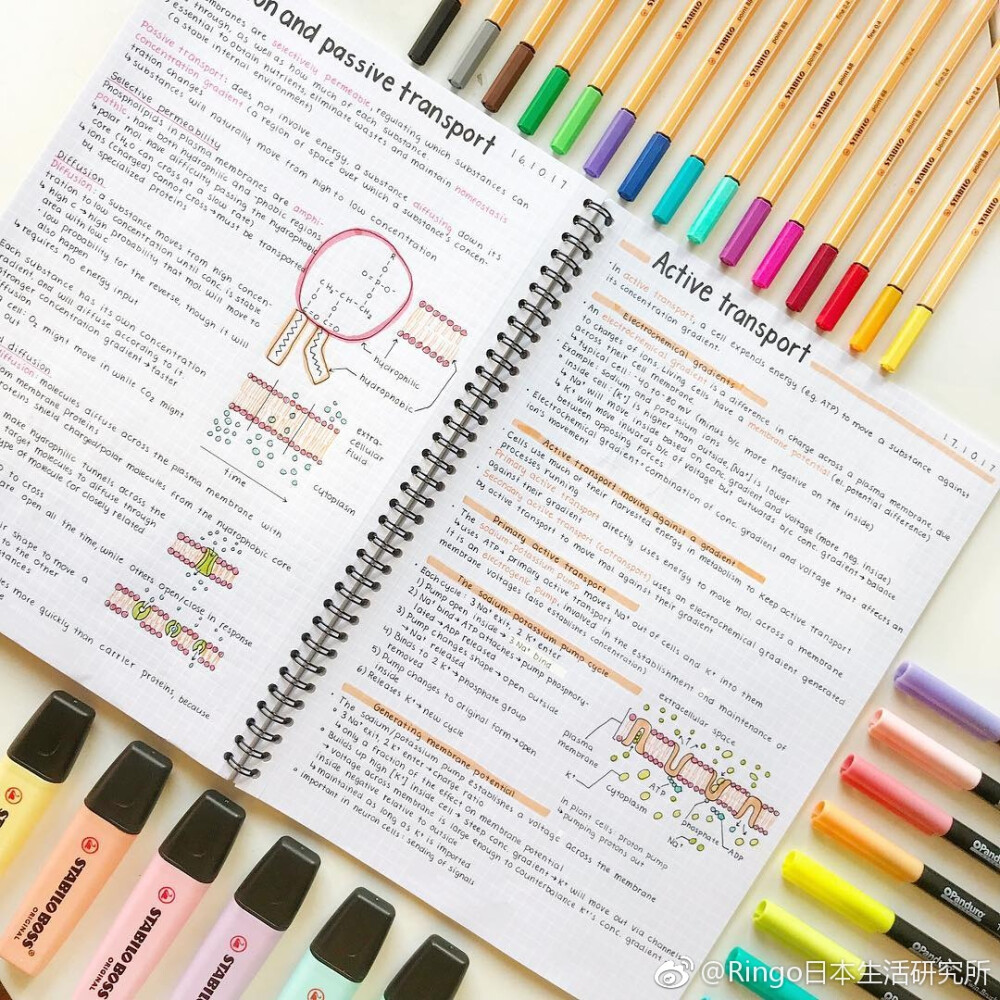 on and passive transport
16.10.17
membranes are selectively permeable, regulating which substances can
through, as well as how much of each substance.
essential to obtain nutrients, eliminate wastes and maintain homeostasis
(a stable internal environment)
Passive transport: does not involve energy, a substance diffusing down its
concentration gradient (a region of space over which a substance's concen-
tration changes)
↳ substances will naturally move from high to low concentration
Selective permeability
Phospholipids in plasma membranes are amphi-
pathic: have both hydrophilic and -phobic regions
↳ polar mol have difficulty passing the hydrophobic
core (H₂O can cross at a slow rate)
↳ ions (charged) cannot cross → must be transported
by specialized proteins
Diffusion
Diffusion: a substance moves from high concen-
tration to low concentration until conc. is stable
↳ high c → high probability that mol will move to
area with low c
• low probability for the reverse, though it will
also happen
↳ requires no energy input
Each substance has its own concentration
gradient, and will diffuse according to it
stronger concentration gradient → faster
diffusion
cell: O₂ might move in while CO₂ might
out
diffusion
diffusion: molecules diffuse across the plasma membrane with
from membrane proteins
proteins shield charged/polar molecules from the hydrophobic core
make hydrophilic tunnels across the
target molecules to diffuse through
type of molecule (or closely related
to cross
are open all the time, while others open/close in response
shape to move a
to the other
stances
more quickly than carrier proteins, because
hydrophilic
hydrophobic
extra-
cellular
fluid
cytoplasm
time
Active transport
17.10.17
• In active transport, a cell expends energy (e.g. ATP) to move a substance against
its concentration gradient.
Electrochemical gradients
• An electrochemical gradient is a difference in charge across a plasma membrane, due
to charges of ions. Living cells have a membrane potential (el. potential difference)
across their cell membrane.
↳ typical cell: -40 to -80 mV (minus b/c more negative on the inside)
Example: sodium and potassium ions
• Inside cell: [K⁺] is higher than outside, [Na⁺] is lower
↳ Na⁺ will move in based on conc. gradient and voltage (more neg. inside)
↳ K⁺ will move inwards b/c of voltage but outwards b/c conc. gradient → balance
between opposing forces
• Electrochemical gradient: combination of conc. gradient and voltage that affects an
ion's movement
Active transport: moving against a gradient
• Cells use much of their harvested energy in metabolism to keep active transport
processes running
• Primary active transport directly uses energy to move mol. across a membrane
against their gradient
• Secondary active transport (cotransport) uses an electrochemical gradient generated
by active transport to move mol against their gradient
Primary active transport
• The sodium-potassium pump moves Na⁺ out of cells and K⁺ into them
↳ uses ATP → primary active transport
• It is an electrogenic pump: involved in the establishment and maintenance of
membrane voltages (also establishes concentration)
The sodium-potassium pump cycle
Each cycle: 3 Na⁺ exit, 2 K⁺ enter
1) Pump open inside → 3 Na⁺ bind
2) Na⁺ bind → ATP attaches → pump phosphory-
lated → ADP released
3) Pump changes shape → open outside
→ Na⁺ released
4) Binds to 2 K⁺ → phosphate group
removed
5) Pump changes to original form → open
inside
6) Releases K⁺ → new cycle
extracellular
space
plasma
membrane
K⁺
cytoplasm
ATP
phosphate
ADP
Na⁺
in plant cells: proton pump
↳ pumping protons out
Generating membrane potential
• The sodium/potassium pump establishes a voltage across the membrane
• 3 Na⁺ exit, 2 K⁺ enter → charge ratio
↳ only a fraction of the effect on membrane potential
• Builds up high [K⁺] inside cell → steep conc. gradient → K⁺ will move out via channels
↳ voltage across membrane is large enough to counterbalance K⁺'s conc. gradient
inside negative relative to outside
↳ maintained as long as K⁺ is imported
• important in neuron cells: sending of signals
STABILO point 88 fine 0,4
STABILO BOSS
ORIGINAL
STABILO BOSS
ORIGINAL
STABILO BOSS
Panduro
Panduro
@Ringo日本生活研究所